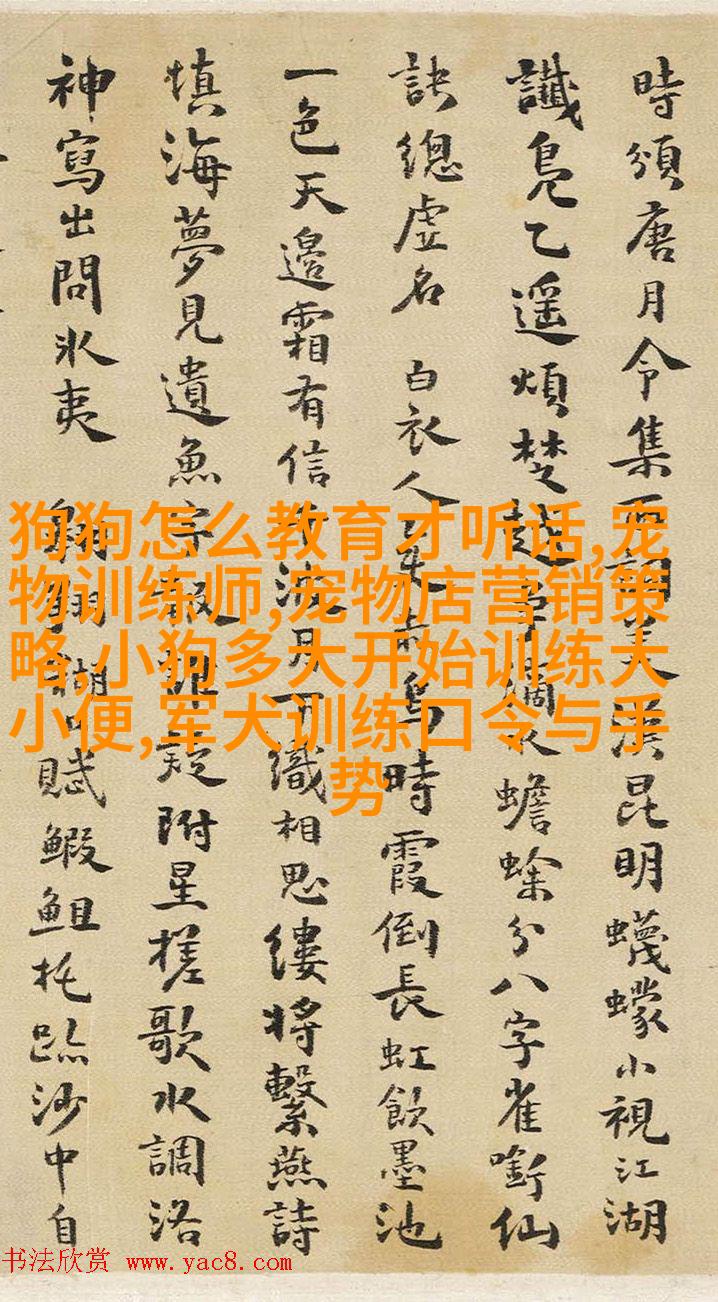 時頒唐月令集漢昆明蠛蠓小視江湖
讖鳧乙遥煩楚越爭蟾蜍分八字雀銜仙
訣總虚名 白衣人時霞倒長虹飲墨池
一色天邊霜有信波月下織相思縷將繫燕詩
填海夢見遺魚字疑附星槎歌水調洛
神寫出問氷夷 翱翔湖賦鰕䱉托沙中自
狗狗怎么教育才听话,宠
物训练师,宠物店营销策
略,小狗多大开始训练大
小便,军犬训练口令与手
势
书法欣赏 www.yac8.com